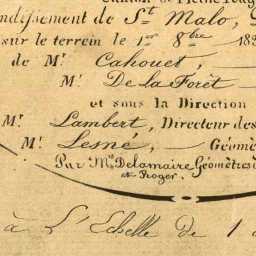 ndissement de St. Malo,
sur le terrein le 1er 8bre 18
de Mr. Cahouet,
Mr. De La Forêt
et sous la Direction
Mr. Lambert, Directeur des
Mr. Lesné, Géomè
Par Mrs. Delamaire Géomètres
et Roger.
à L'Echelle de 1 à